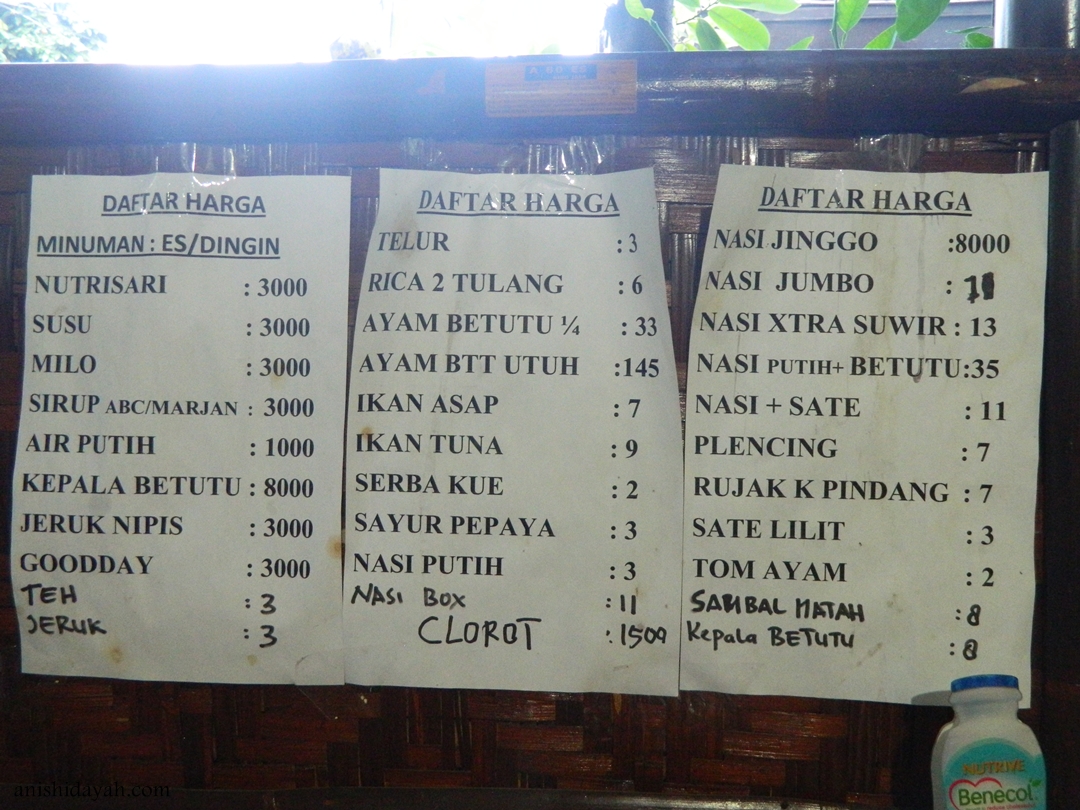 DAFTAR HARGA
MINUMAN : ES/DINGIN
NUTRISARI : 3000
SUSU : 3000
MILO : 3000
SIRUP ABC/MARJAN : 3000
AIR PUTIH : 1000
KEPALA BETUTU : 8000
JERUK NIPIS : 3000
GOODDAY : 3000
TEH : 3
JERUK : 3
DAFTAR HARGA
TELUR : 3
RICA 2 TULANG : 6
AYAM BETUTU ¼ : 33
AYAM BTT UTUH :145
IKAN ASAP : 7
IKAN TUNA : 9
SERBA KUE : 2
SAYUR PEPAYA : 3
NASI PUTIH : 3
NASI BOX : 11
CLOROT : 1500
DAFTAR HARGA
NASI JINGGO :8000
NASI JUMBO :
NASI XTRA SUWIR : 13
NASI PUTIH+ BETUTU:35
NASI + SATE : 11
PLENCING : 7
RUJAK K PINDANG : 7
SATE LILIT : 3
TOM AYAM : 2
SAMBAL MATAH : 8
Kepala BETUTU : 8
NUTRIVE
Benecol
anishidayah.com